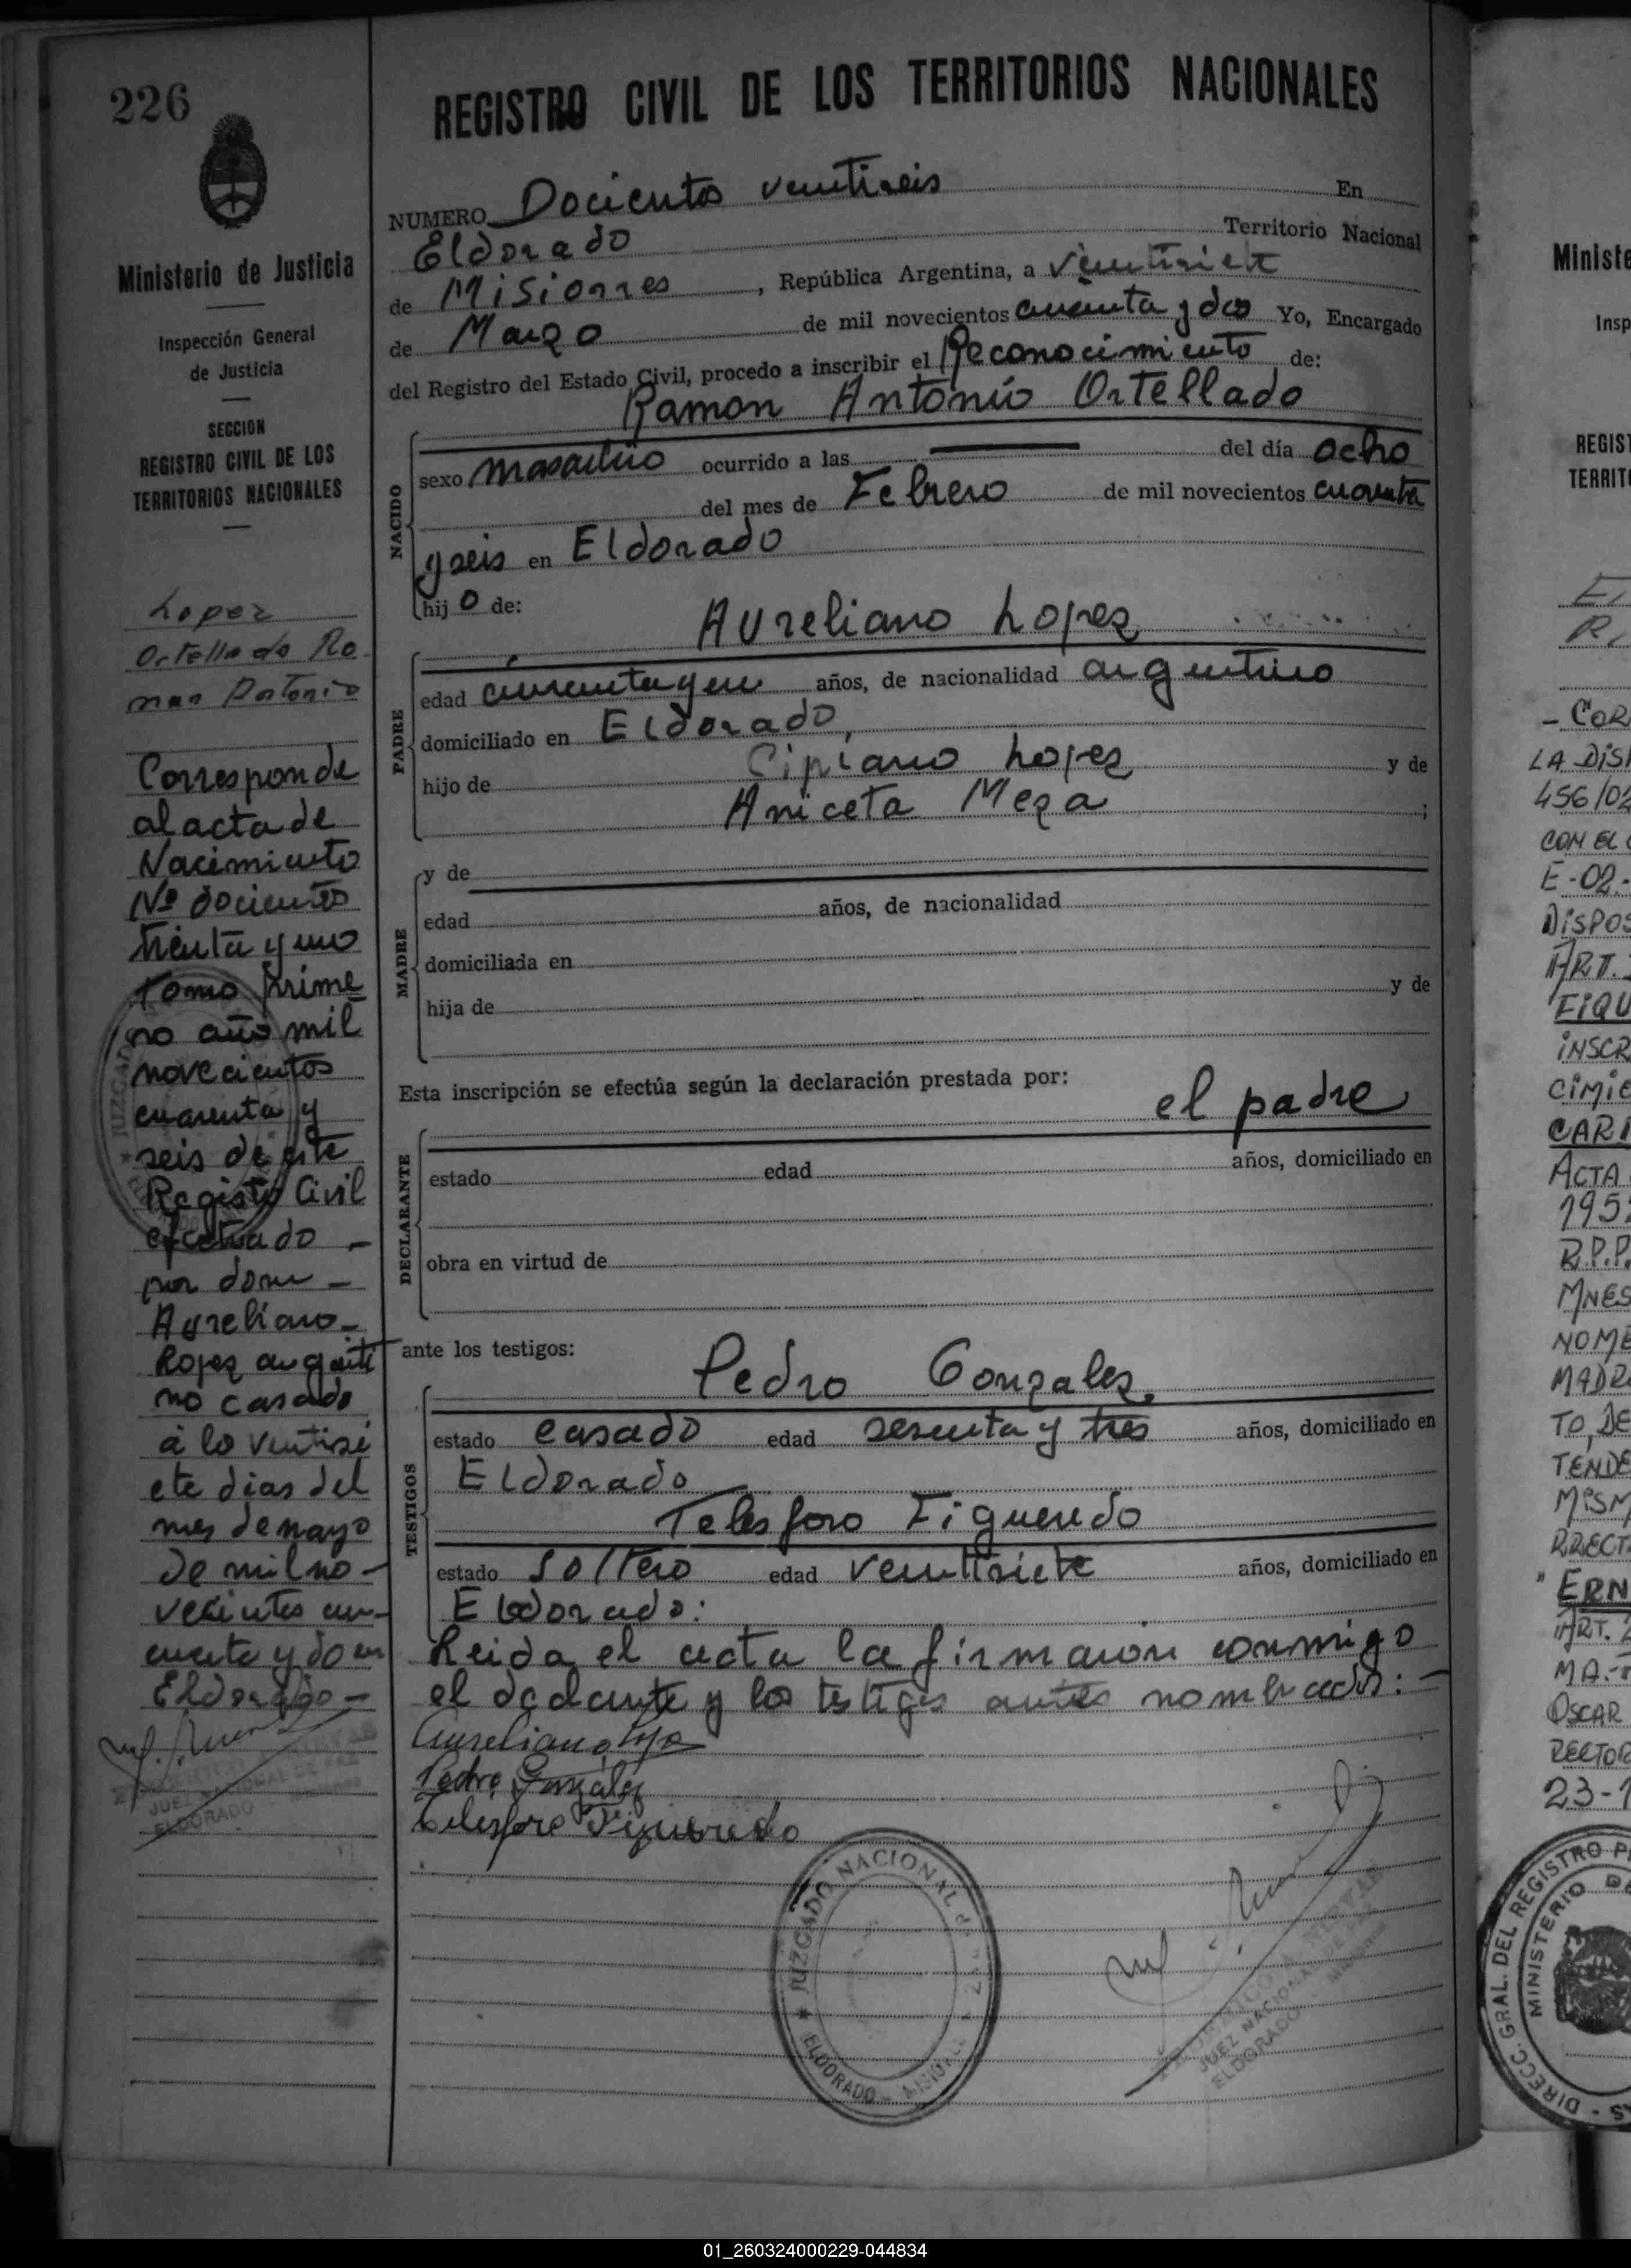 226
Ministerio de Justicia
Inspección General
de Justicia
SECCION
REGISTRO CIVIL DE LOS
TERRITORIOS NACIONALES
Lopez
Ortellado Ra
mon Antonio
Corresponde
al acta de
Nacimiento
Nº docientos
treinta y uno
Tomo prime
ro año mil
novecientos
cuarenta y
seis de este
Registro Civil
efectuado -
por don -
Aureliano -
Lopez argenti
no casado
á lo ventisi
ete dias del
mes de mayo
de mil no-
vecientos cin-
cuenta y do en
Eldorado -
JUEZ NACIONAL DE PAZ
ELDORADO - Misiones
REGISTRO CIVIL DE LOS TERRITORIOS NACIONALES
NUMERO Docientos ventiseis En
Eldorado Territorio Nacional
de Misiones, República Argentina, a ventisiete
de Marzo de mil novecientos cincuenta y dos Yo, Encargado
del Registro del Estado Civil, procedo a inscribir el Reconocimiento de:
Ramon Antonio Ortellado
NACIDO
sexo masculino ocurrido a las ——— del día ocho
del mes de Febrero de mil novecientos cuarenta
y seis en Eldorado
hijo de:
Aureliano Lopez
PADRE
edad cuarenta y un años, de nacionalidad argentino
domiciliado en Eldorado,
hijo de Cipriano Lopez y de
Aniceta Meza ;
MADRE
y de
edad años, de nacionalidad
domiciliada en
hija de y de
Esta inscripción se efectúa según la declaración prestada por:
el padre
DECLARANTE
estado edad años, domiciliado en
obra en virtud de
ante los testigos:
Pedro Gonzalez.
TESTIGOS
estado casado edad sesenta y tres años, domiciliado en
Eldorado
Telesforo Figueredo
estado Soltero edad ventisiete años, domiciliado en
Eldorado:
Leida el acta la firmaron conmigo
el declarante y los testigos antes nombrados: -
Aureliano Lopez
Pedro González
Telesforo Figueredo
JUZGADO NACIONAL de PAZ
ELDORADO - MISIONES
JUEZ NACIONAL DE PAZ
ELDORADO - Misiones
Ministe
Insp
REGIST
TERRIT
- COR
LA DIS
456/02
CON EL
E-02-
DISPOS
ART.
FIQU
INSCR
CIMIE
CAR
ACTA
195
R.P.P.
MNES
NOMB
MADR
TO, DE
TENDE
MISM
RRECT
"ERN
ART. 2
MA.-
OSCAR
RECTOR
23-1
DIRECC. GRAL. DEL REGISTRO P
MINISTERIO DE
01_260324000229-044834